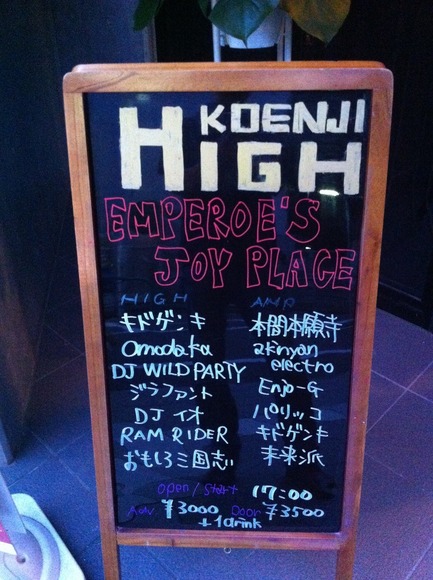 KOENJI
HIGH
EMPEROE'S
JOY PLACE
HIGH
キドゲンキ
Omodaka
DJ WILD PARTY
ジラファント
DJ イオ
RAM RIDER
おもしろ三国志
AMP
本間本願寺
akinyan
electro
Enjo-G
パリッコ
キドゲンキ
未来派
open/start 17:00
Adv ¥3000 Door ¥3500
+1drink